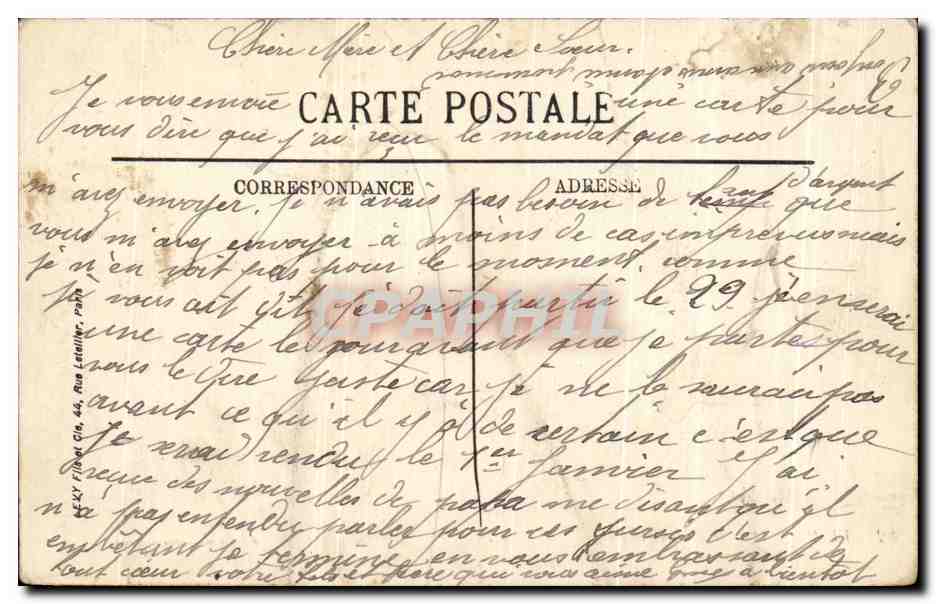 Chère Mère et Chère Sœur.
Je vous envoie une carte pour
CARTE POSTALE
vous dire que j'ai reçu le mandat que vous
CORRESPONDANCE
ADRESSE
m'avez envoyer. Je n'avais pas besoin de d'argent que
vous m'avez envoyer à moins de cas imprevus mais
je n'en voit pas pour le moment. comme
je vous ait dit je doit partir le 29 j'enverai
une carte le jour avant que je partes pour
vous le dire juste car je ne le saurai pas
avant ce qu'il y a de certain c'est que
Je serai rendu le 1er Janvier J'ai
reçue des nouvelles de papa me disant qu'il
n'a pas entendu parler pour ces sursis c'est
je termine en vous embrassant de
tout cœur votre fils et frère qui vous aime a bientot
EKY Fils et Cie, 44, Rue Letellier, Paris
CPAPHIL